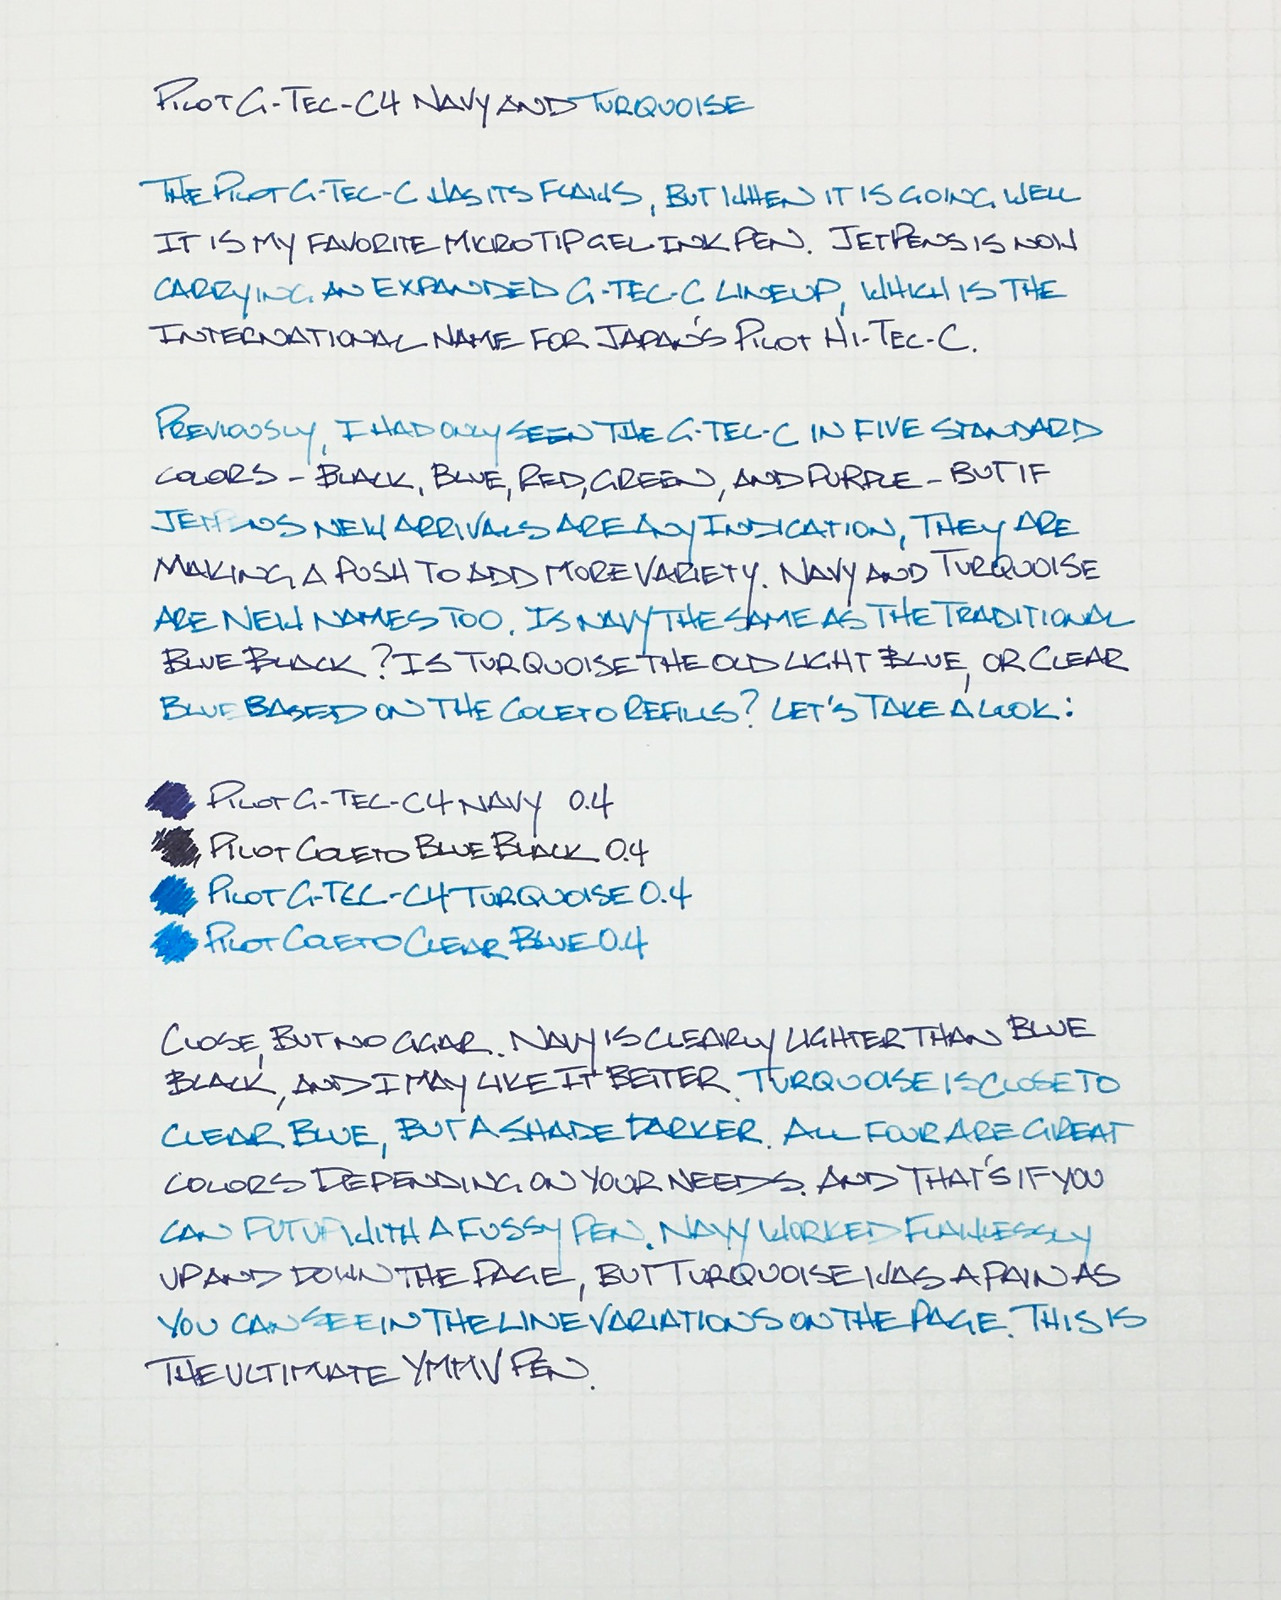 PILOT G-TEC-C4 NAVY AND TURQUOISE
THE PILOT G-TEC-C HAS ITS FLAWS, BUT WHEN IT IS GOING WELL
IT IS MY FAVORITE MICRO TIP GEL INK PEN. JETPENS IS NOW
CARRYING AN EXPANDED G-TEC-C LINEUP, WHICH IS THE
INTERNATIONAL NAME FOR JAPAN'S PILOT HI-TEC-C.
PREVIOUSLY, I HAD ONLY SEEN THE G-TEC-C IN FIVE STANDARD
COLORS - BLACK, BLUE, RED, GREEN, AND PURPLE - BUT IF
JETPENS NEW ARRIVALS ARE ANY INDICATION, THEY ARE
MAKING A PUSH TO ADD MORE VARIETY. NAVY AND TURQUOISE
ARE NEW NAMES TOO. IS NAVY THE SAME AS THE TRADITIONAL
BLUE BLACK? IS TURQUOISE THE OLD LIGHT BLUE, OR CLEAR
BLUE BASED ON THE COLETO REFILLS? LET'S TAKE A LOOK:
PILOT G-TEC-C4 NAVY 0.4
PILOT COLETO BLUE BLACK 0.4
PILOT G-TEC-C4 TURQUOISE 0.4
PILOT COLETO CLEAR BLUE 0.4
CLOSE, BUT NO CIGAR. NAVY IS CLEARLY LIGHTER THAN BLUE
BLACK, AND I MAY LIKE IT BETTER. TURQUOISE IS CLOSE TO
CLEAR BLUE, BUT A SHADE DARKER. ALL FOUR ARE GREAT
COLORS DEPENDING ON YOUR NEEDS. AND THAT'S IF YOU
CAN PUT UP WITH A FUSSY PEN. NAVY WORKED FLAWLESSLY
UP AND DOWN THE PAGE, BUT TURQUOISE WAS A PAIN AS
YOU CAN SEE IN THE LINE VARIATIONS ON THE PAGE. THIS IS
THE ULTIMATE YMMV PEN.